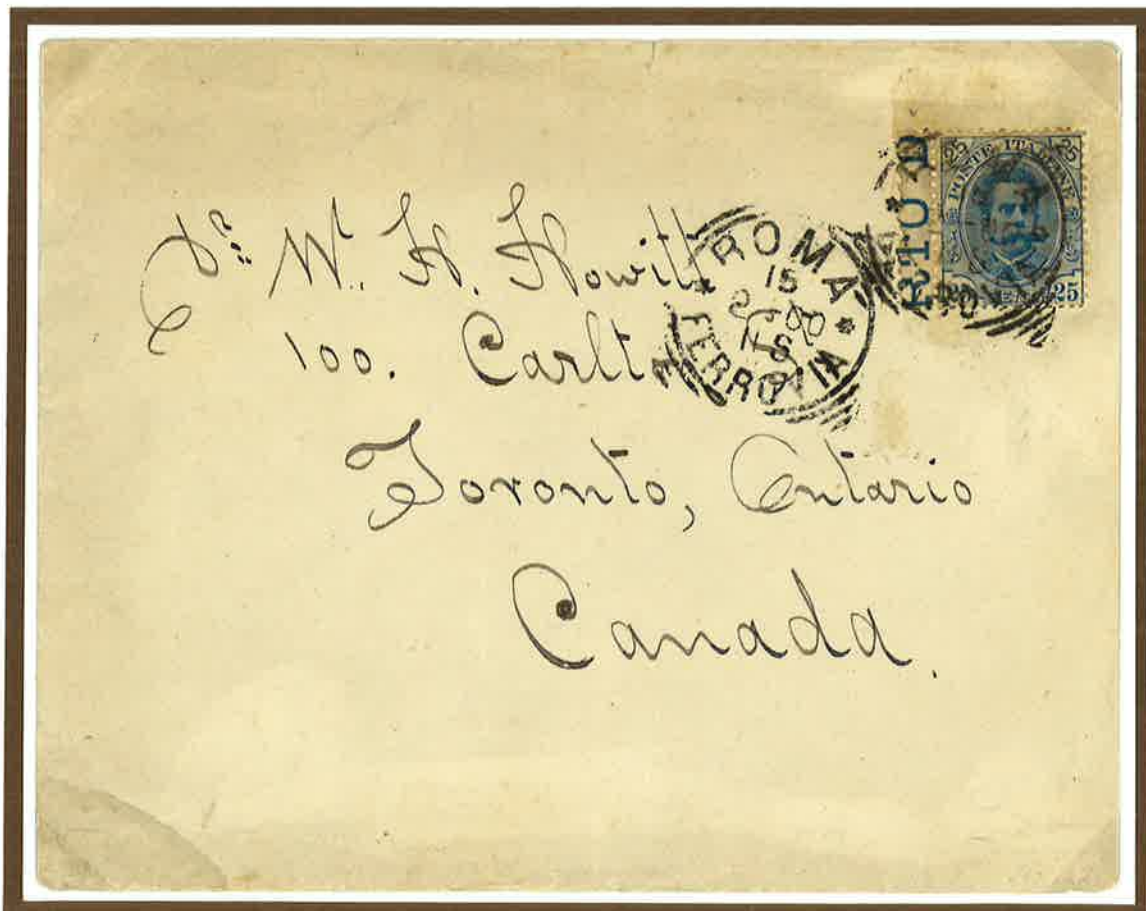 Dr. W. H. Howitt
100. Carlton
Toronto, Ontario
Canada.
ROMA
15
FERROVIA
RTO D
POSTE ITALIANE
25 25
25